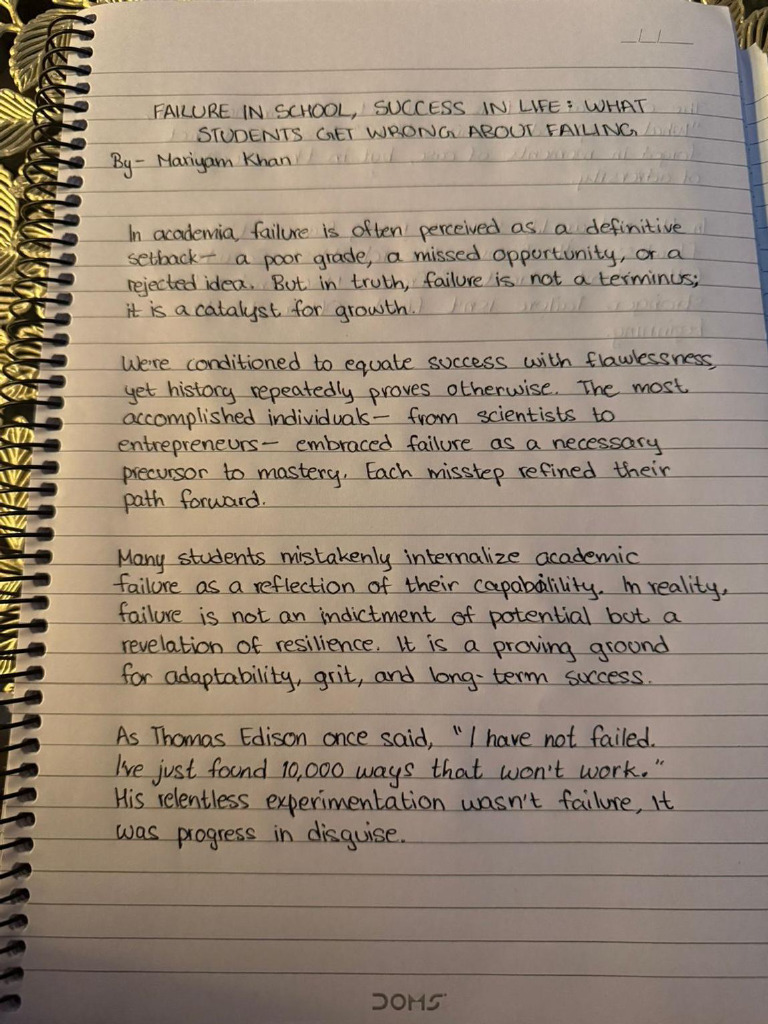 FAILURE IN SCHOOL, SUCCESS IN LIFE: WHAT
STUDENTS GET WRONG ABOUT FAILING
By- Mariyam Khan
In academia, failure is often perceived as a definitive
setback— a poor grade, a missed opportunity, or a
rejected idea. But in truth, failure is not a terminus;
it is a catalyst for growth.
We're conditioned to equate success with flawlessness,
yet history repeatedly proves otherwise. The most
accomplished individuals— from scientists to
entrepreneurs— embraced failure as a necessary
precursor to mastery. Each misstep refined their
path forward.
Many students mistakenly internalize academic
failure as a reflection of their capability. In reality,
failure is not an indictment of potential but a
revelation of resilience. It is a proving ground
for adaptability, grit, and long-term success.
As Thomas Edison once said, "I have not failed.
I've just found 10,000 ways that won't work."
His relentless experimentation wasn't failure, it
was progress in disguise.
DOMS